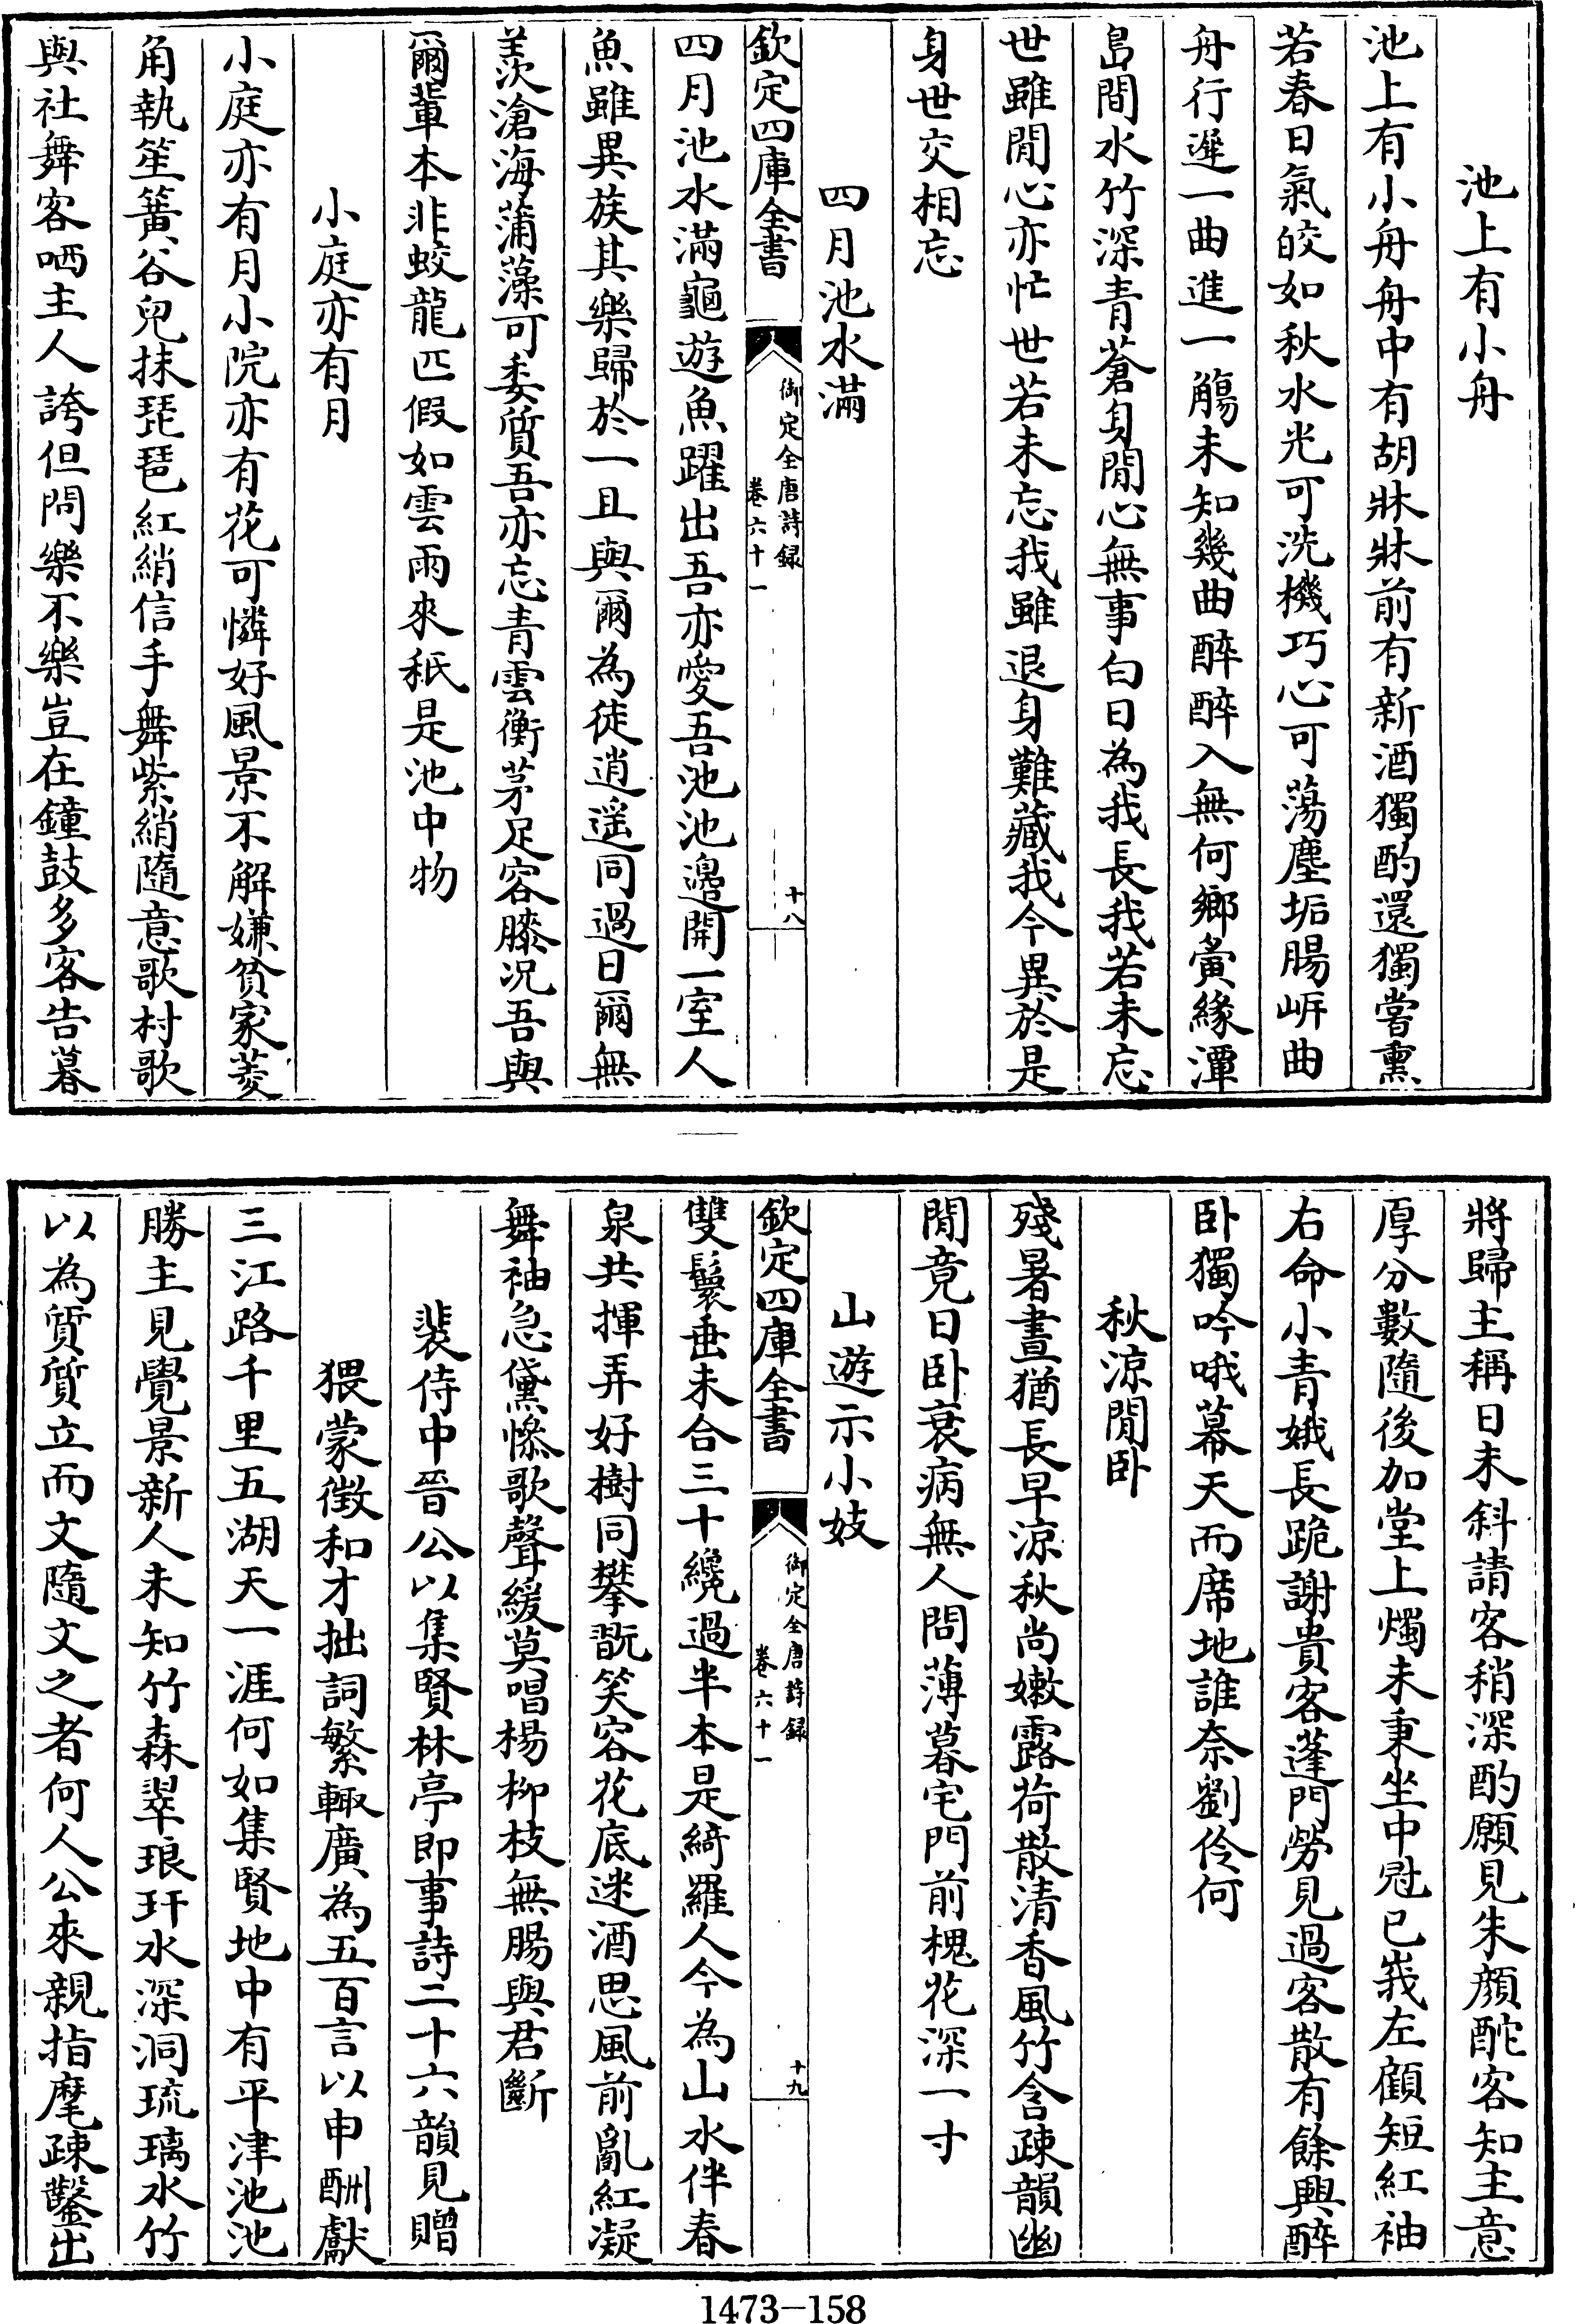 池上有小舟
池上有小舟舟中有胡牀牀前有新酒獨酌還獨嘗熏
若春日氣皎如秋水光可洗機巧心可蕩塵垢腸岍曲
舟行遲一曲進一觴未知幾曲醉醉入無何鄉夤緣潭
島間水竹深青蒼身閒心無事白日為我長我若未忘
世雖閒心亦忙世若未忘我雖退身難藏我今異於是
身世交相忘
四月池水滿
欽定四庫全書
御定全唐詩録
卷六十一
十八
四月池水滿龜遊魚躍出吾亦愛吾池池邊開一室人
魚雖異族其樂歸於一且與爾為徒逍遥同過日爾無
羡滄海蒲藻可委質吾亦忘青雲衡茅足容膝況吾與
爾輩本非蛟龍匹假如雲雨來秖是池中物
小庭亦有月
小庭亦有月小院亦有花可憐好風景不解嫌貧家菱
角執笙簧谷兒抹琵琶紅綃信手舞紫綃隨意歌村歌
與社舞客哂主人誇但問樂不樂豈在鐘鼓多客告暮
將歸主稱日未斜請客稍深酌願見朱顔酡客知主意
厚分數隨後加堂上燭未秉坐中冠已峩左顧短紅袖
右命小青娥長跪謝貴客蓬門勞見過客散有餘興醉
卧獨吟哦幕天而席地誰奈劉伶何
秋涼閒卧
殘暑晝猶長早涼秋尚嫩露荷散清香風竹含疎韻幽
閒竟日卧衰病無人問薄暮宅門前槐花深一寸
山遊示小妓
欽定四庫全書
御定全唐詩録
卷六十一
十九
雙鬟垂未合三十纔過半本是綺羅人今為山水伴春
泉共揮弄好樹同攀翫笑容花底迷酒思風前亂紅凝
舞袖急黛慘歌聲緩莫唱楊柳枝無腸與君斷
裴侍中晉公以集賢林亭即事詩二十六韻見贈
猥蒙徴和才拙詞繁輙廣為五百言以申酬獻
三江路千里五湖天一涯何如集賢地中有平津池池
勝主見覺景新人未知竹森翠琅玕水深洞琉璃水竹
以為質質立而文隨文之者何人公來親指麾疎鑿出
1473-158